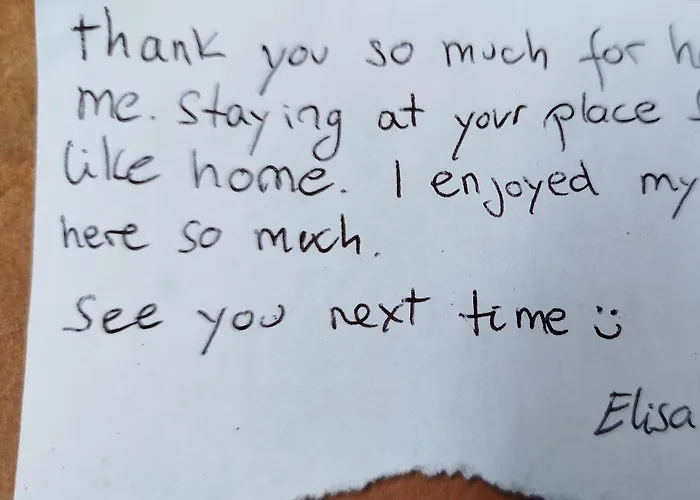 thank you so much for
me. Staying at your place
like home. I enjoyed my
here so much.
See you next time :)
Elisa